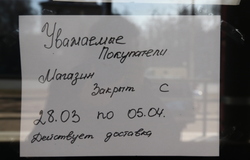 Уважаемые
Покупатели
Магазин
Закрыт с
28.03 по 05.04.
Действует доставка